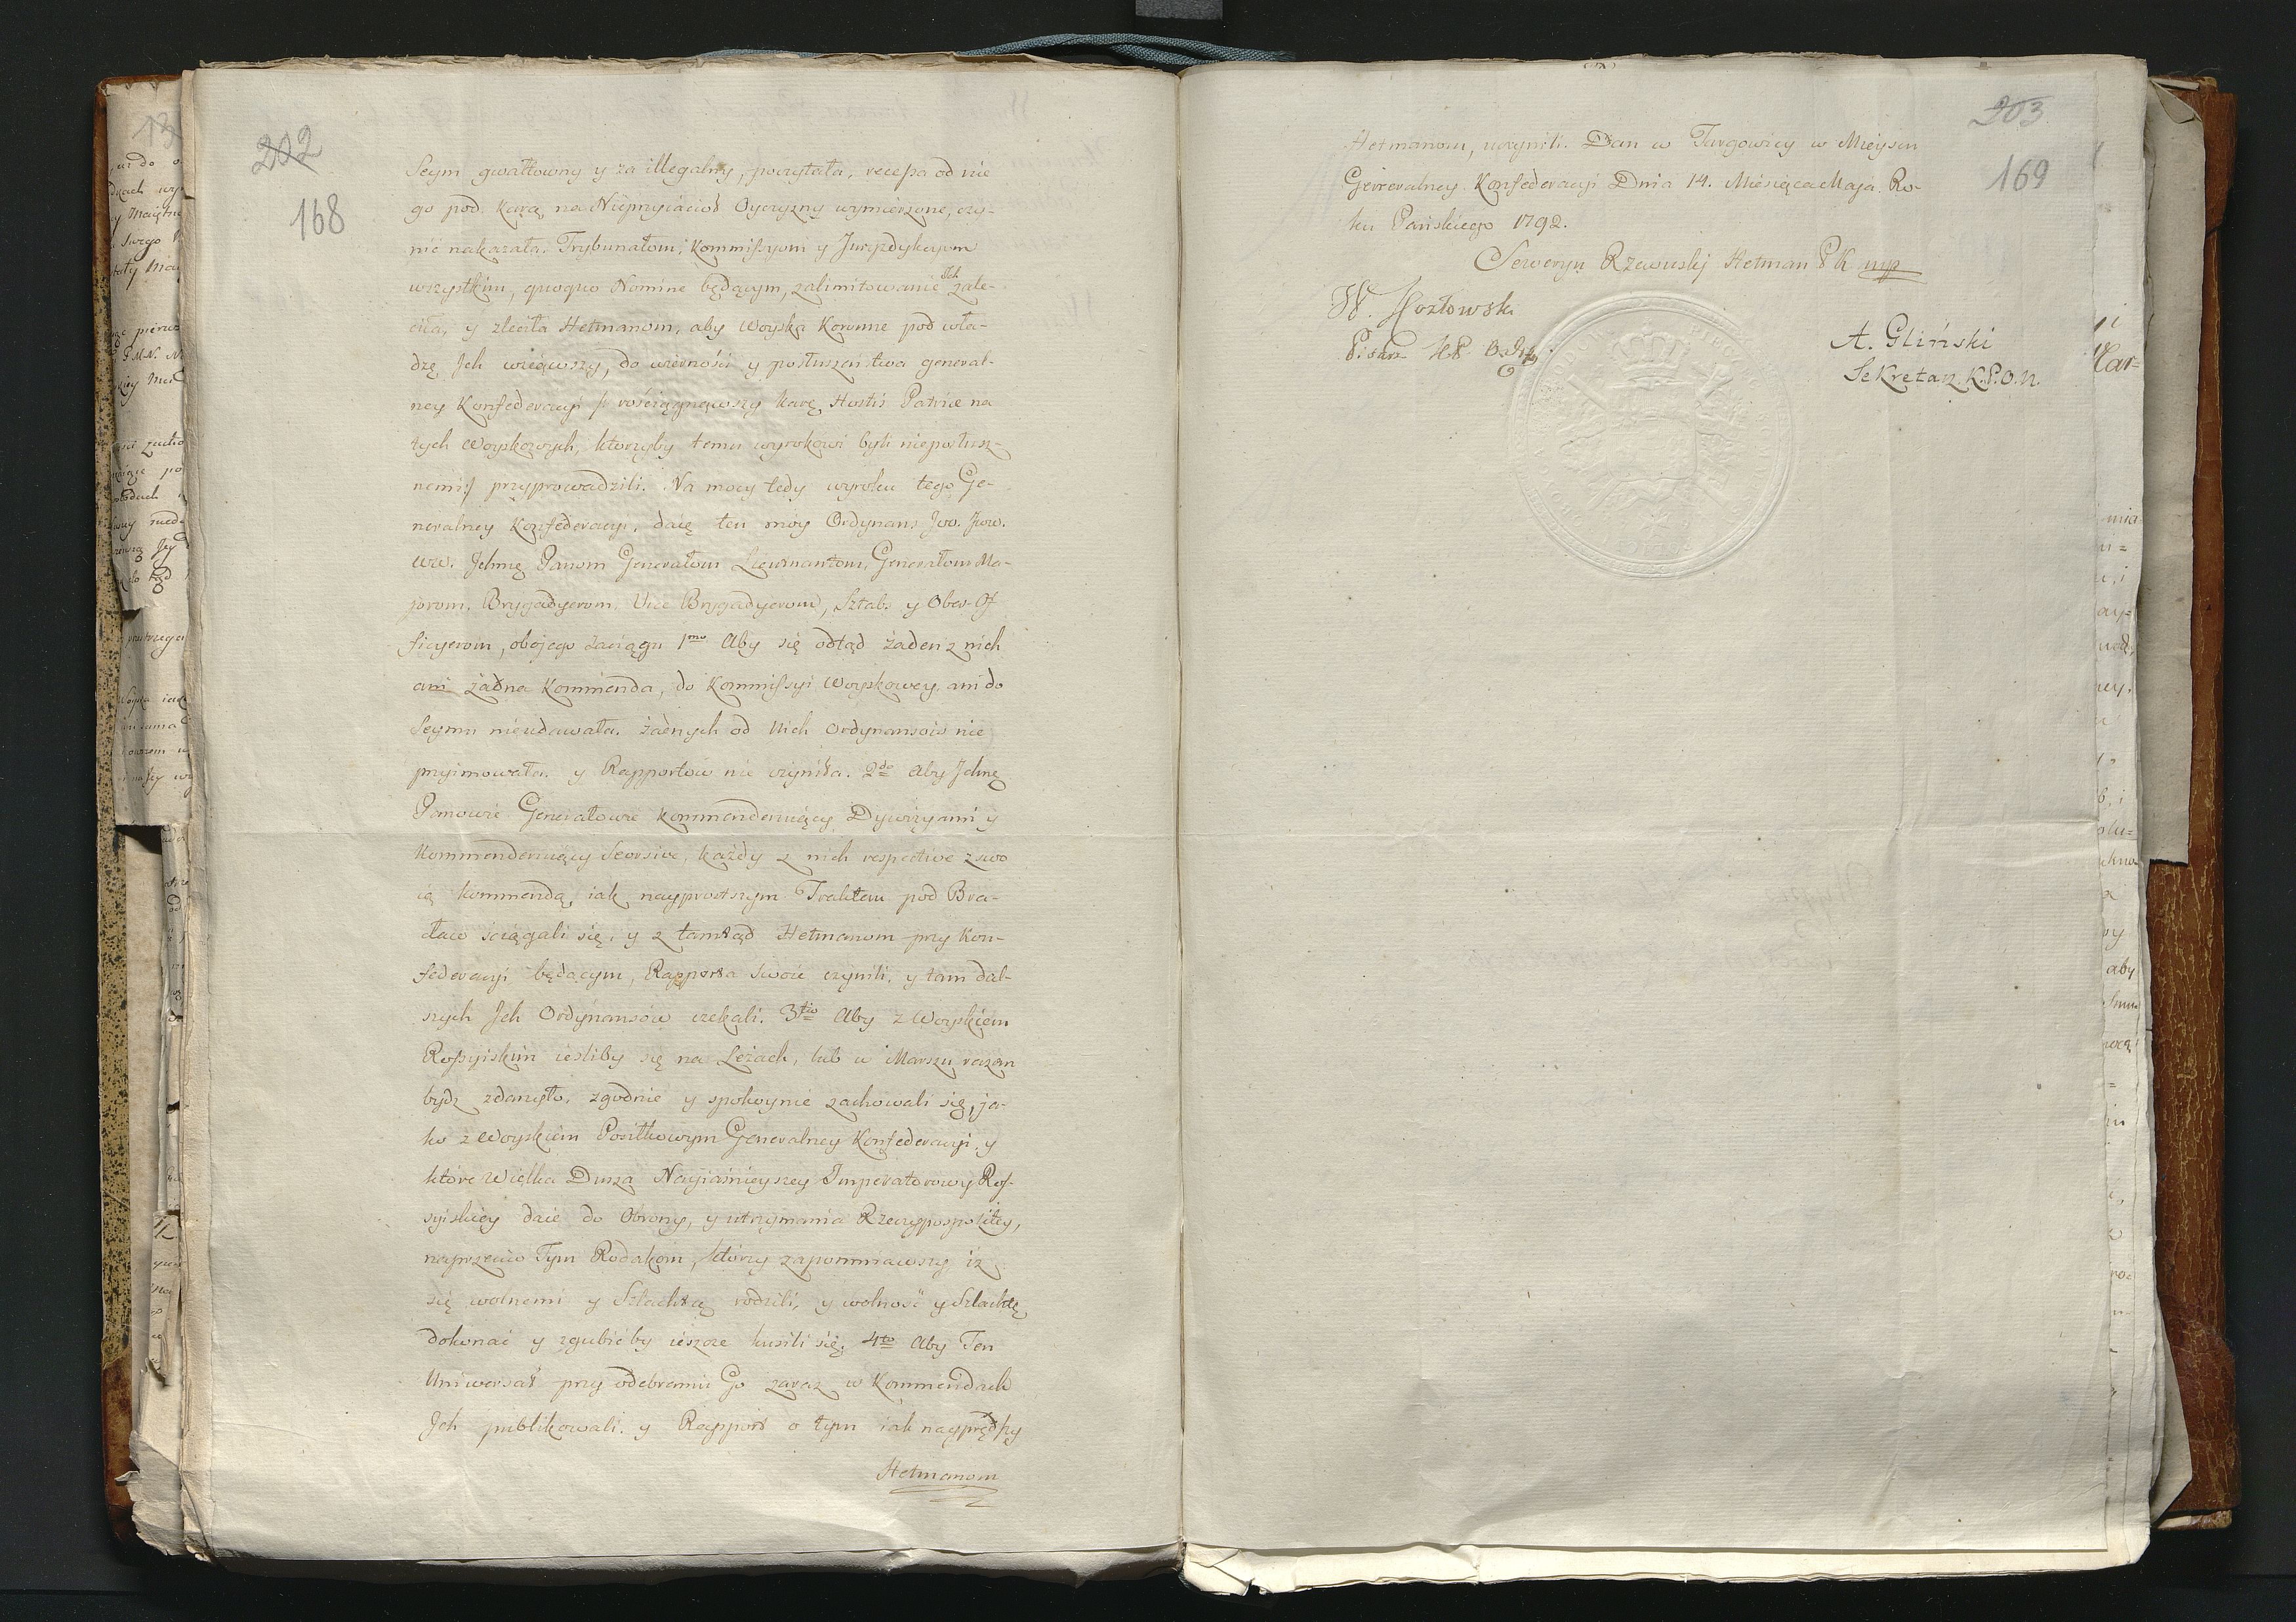 202
168
Seym gwałtowny y za illegalny, poczytała, recessa od nie
go pod karą na Nieprzyiacioł Oyczyzny wymierzone, czy-
nić nakazała. Trybunałom, Kommissyom y Juryzdykcyom
wszystkim, quoquo Nomine będącym, zalimitowanie Ich zale-
ciła, y zleciła Hetmanom, aby Woyska Koronne pod wła-
dzę Ich wziąwszy, do wierności y posłuszeństwa general-
ney Konfederacyi /: rościągnąwszy karę Hostis Patriæ na
tych Woyskowych, ktorzyby temu wyrokowi byli nieposłusz-
nemi :/ przyprowadzili. Na mocy tedy wyroku tego Ge-
neralney Konfederacyi, daię ten moy Ordynans Jww. Jww.
ww. Jchmę Panom Generałom Lieutnantom, Generałom Ma-
jorom, Brygadyerom, Vice Brygadyerom, Sztabs y Ober-Of
ficyerom, obojego zaciągu 1mo Aby się odtąd żaden z nich
ani żadna Kommenda, do Kommissyi Woyskowey, ani do
Seymu nieudawała, żadnych od Nich Ordynansow nie
przyimowała, y Rapportow nie czyniła. 2do Aby Jchmę
Panowie Generałowie kommenderuiący Dywizyami y
Kommenderuiący Seorsive, każdy z nich respective z swo
ią kommendą, iak nayprostszym Traktem pod Bra-
cław sciągali się, y z tamtąd Hetmanom przy Kon-
federacyi będącym, Rapporta swoie czynili, y tam dal-
szych Jch Ordynansow czekali. 3tio Aby z Woyskiem
Rossyiskim iesliby się na Leżach, lub w Marszu razem
bydz zdarzyło, zgodnie y spokoynie zachowali się, ja-
ko z Woyskiem Posiłkowym Generalney Konfederacyi, y
ktore Wielka Dusza Nayiaśnieyszey Imperatorowy Ros-
syiskiey daie do Obrony, y utrzymania Rzeczypospolitey,
naprzeciw Tym Rodakom, ktorzy zapomniawszy iż
się wolnemi y Szlachtą rodzili, y wolność y Szlachtę
dokonać y zgubić by ieszcze kusili się. 4to Aby Ten
Uniwersał przy odebraniu Go zaraz w Kommendach
Jch publikowali, y Rapport o tym iak nayprędzey
Hetmanom
203
169
Hetmanom, uczynili. Dan w Targowicy w Mieyscu
Generalney Konfederacyi Dnia 14. Miesiąca Maja. Ro-
ku Pańskiego 1792.
Seweryn Rzewuski Hetman P K mp
W. Kozłowski
Pisarz
A. Gliński
Sekretarz K.P.O.N.